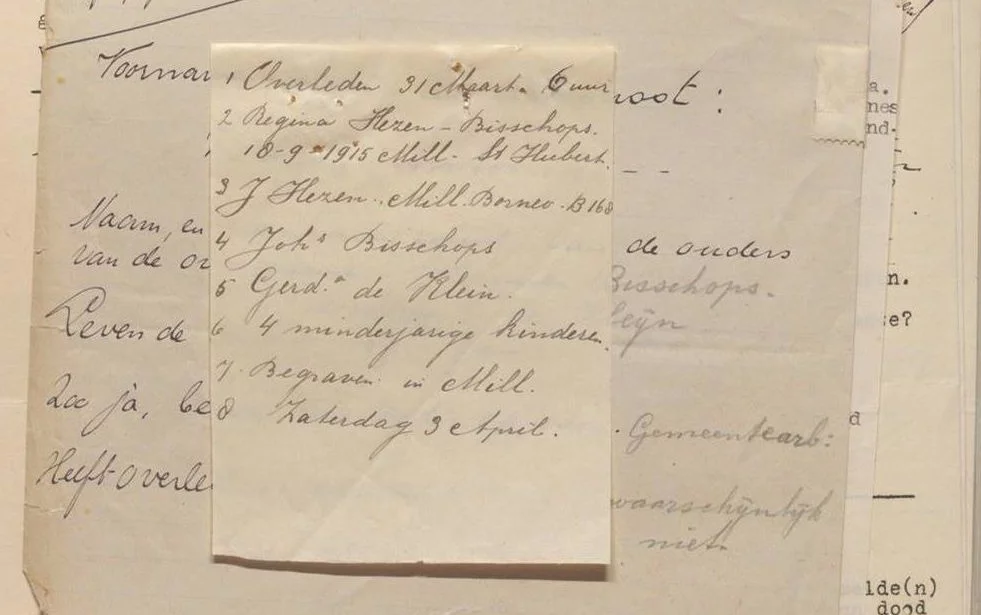 Voornar
oot :
a.
nes
nd.
1 Overleden 31 Maart. 6 uur
2 Regina Hezen - Bisschops.
18-9-1915 Mill. St Hubert.
3 J Hezen. Mill. Borneo. B168
Naam, en
van de o
4 Johs Bisschops
de ouders
5 Gerd.a de Klein.
Bisschops.
n.
Leven de
6 4 minderjarige kinderen.
eijn
e?
7. Begraven in Mill.
Zoo ja, be
8 Zaterdag 3 April.
. Gemeentearb:
d
Heeft overle
waarschijnlijk
niet.
lde(n)
dood